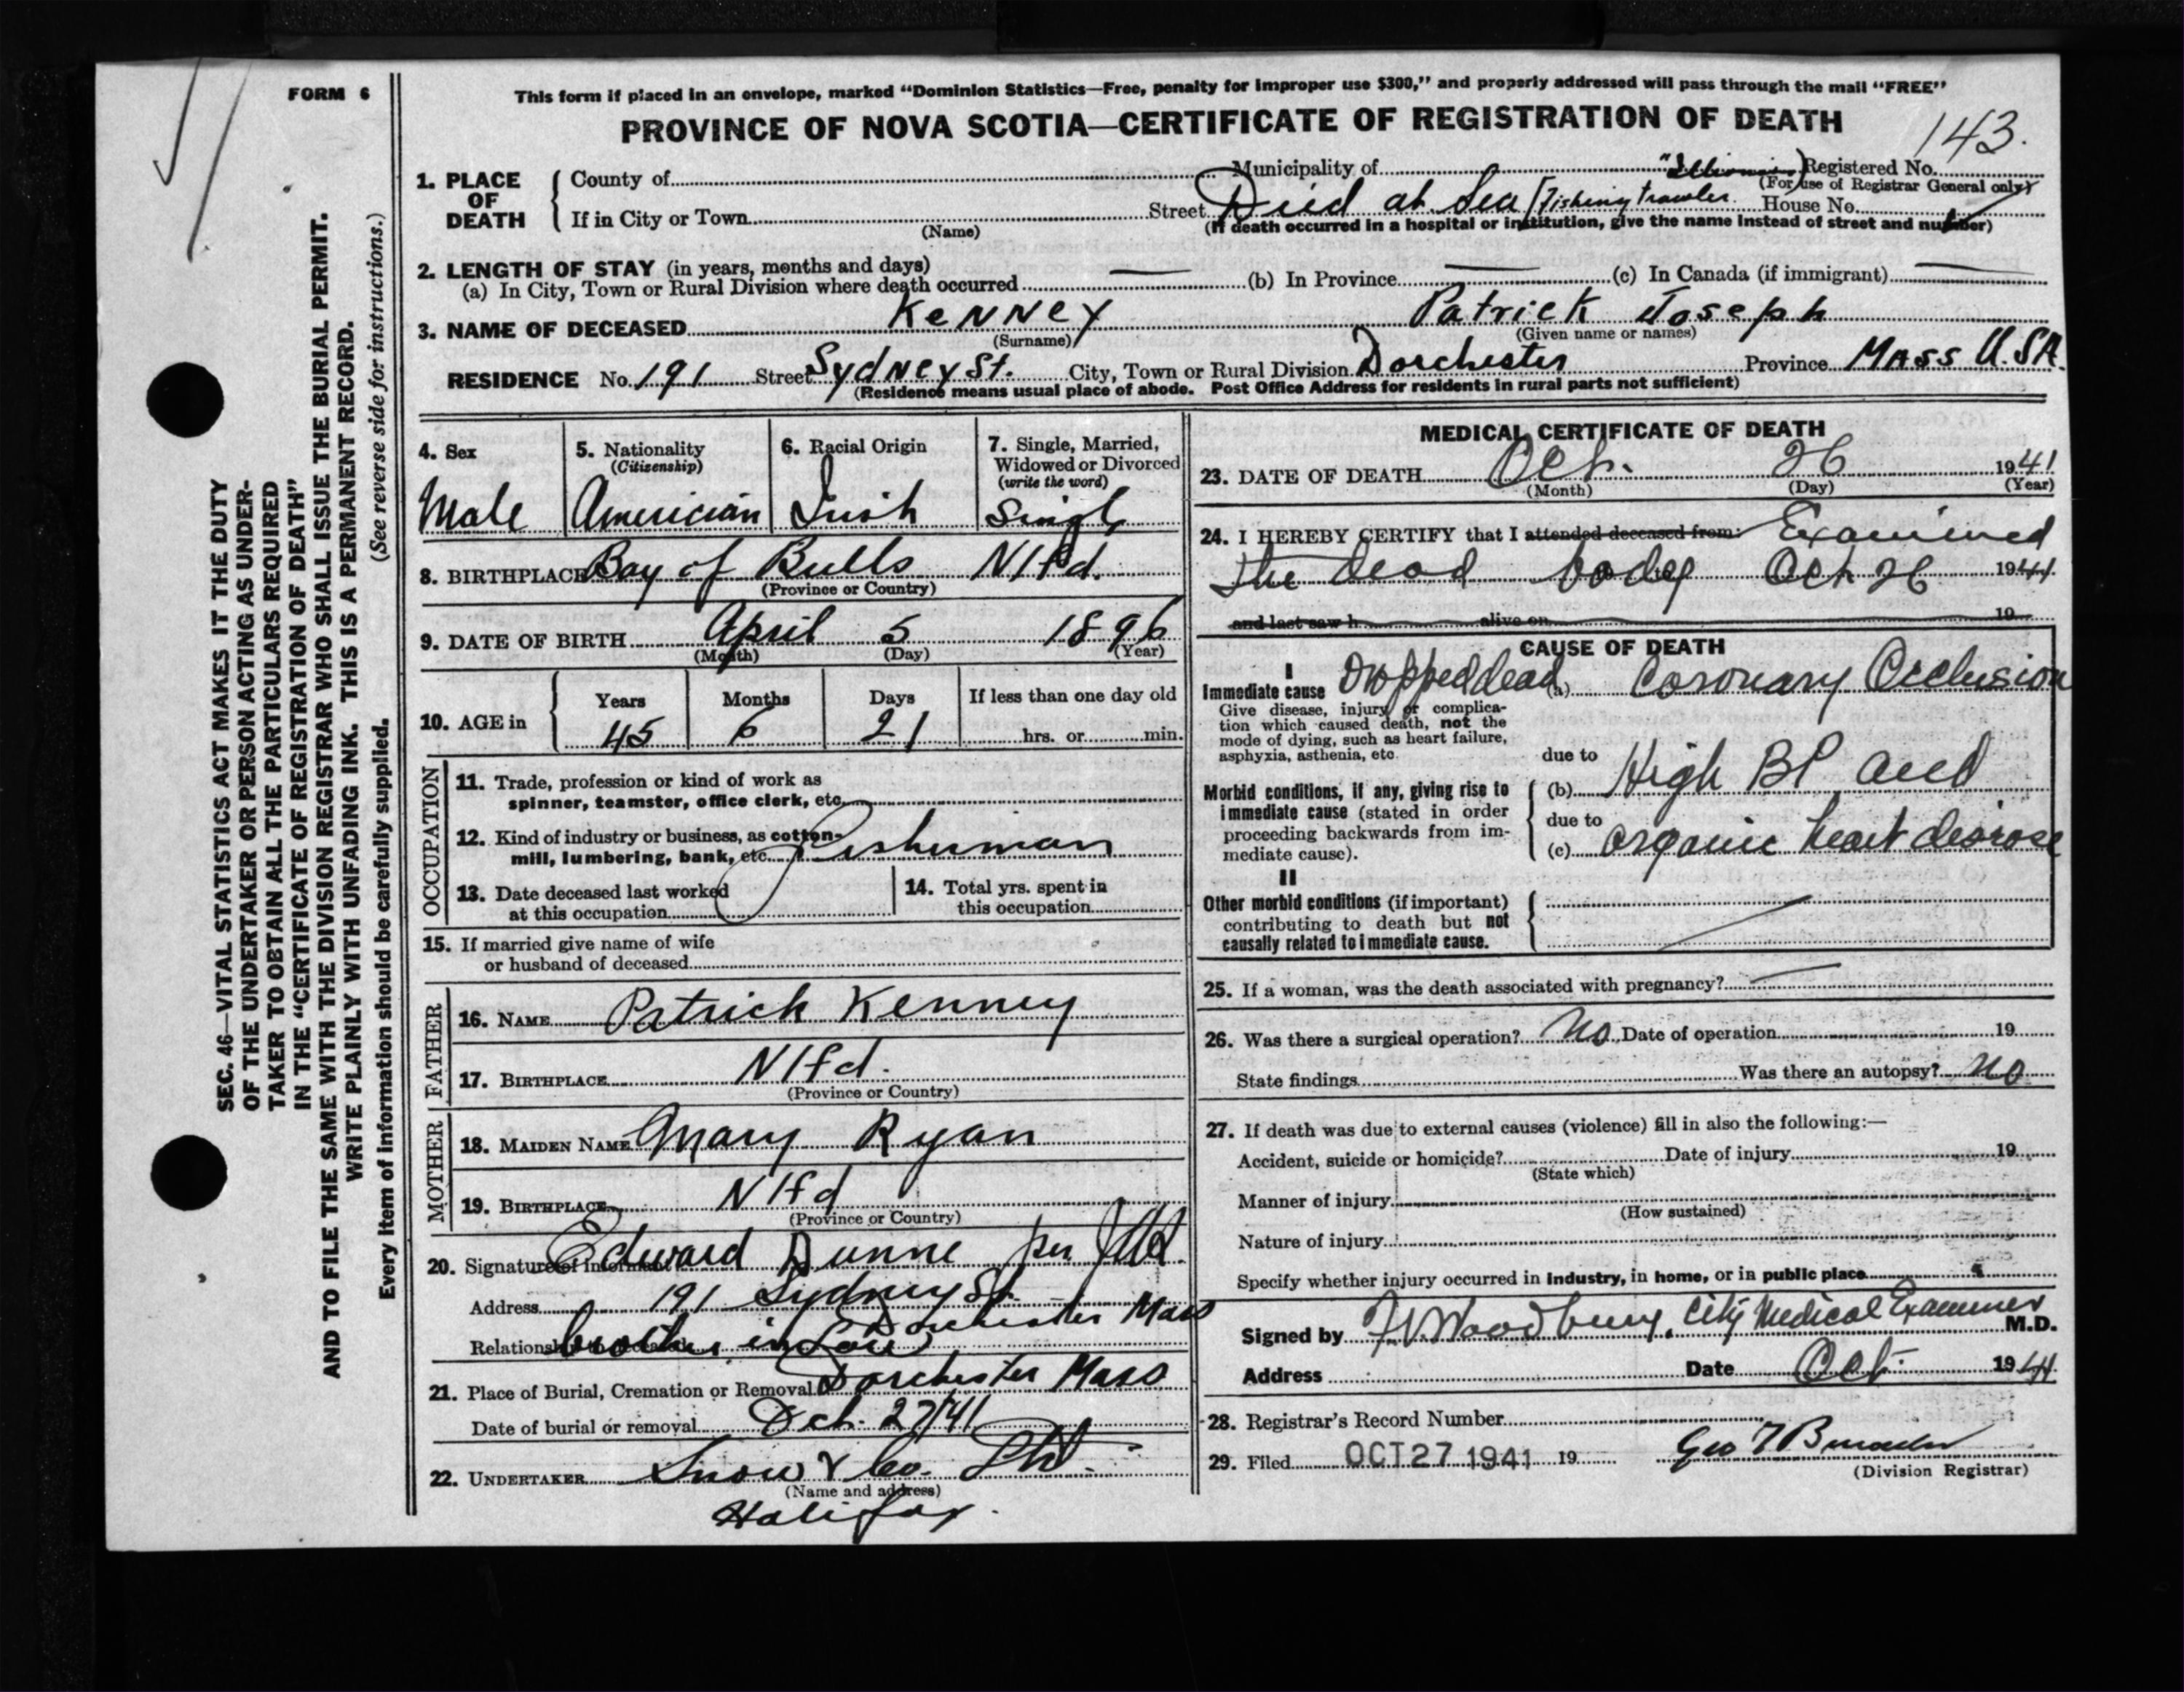 FORM 6
This form if placed in an envelope, marked "Dominion Statistics—Free, penalty for improper use $300," and properly addressed will pass through the mail "FREE"
PROVINCE OF NOVA SCOTIA—CERTIFICATE OF REGISTRATION OF DEATH
143.
1. PLACE OF DEATH
County of
Municipality of
Registered No.
(For use of Registrar General only)
If in City or Town
(Name)
Street Died at Sea (Fishing Trawler
House No.
(If death occurred in a hospital or institution, give the name instead of street and number)
2. LENGTH OF STAY (in years, months and days)
(a) In City, Town or Rural Division where death occurred — (b) In Province — (c) In Canada (if immigrant) —
3. NAME OF DECEASED Kenney Patrick Joseph
(Surname) (Given name or names)
RESIDENCE No. 191 Street Sydney St. City, Town or Rural Division Dorchester Province Mass U.S.A.
(Residence means usual place of abode. Post Office Address for residents in rural parts not sufficient)
4. Sex
Male
5. Nationality
(Citizenship)
Americian
6. Racial Origin
Irish
7. Single, Married,
Widowed or Divorced
(write the word)
Single
8. BIRTHPLACE Bay of Bulls Nfld.
(Province or Country)
9. DATE OF BIRTH April 5 1896
(Month) (Day) (Year)
10. AGE in
Years Months Days If less than one day old
45 6 21 hrs. or min.
OCCUPATION
11. Trade, profession or kind of work as
spinner, teamster, office clerk, etc.
12. Kind of industry or business, as cotton-
mill, lumbering, bank, etc. Fisherman
13. Date deceased last worked
at this occupation
14. Total yrs. spent in
this occupation
15. If married give name of wife
or husband of deceased
FATHER
16. NAME Patrick Kenney
17. BIRTHPLACE Nfld.
(Province or Country)
MOTHER
18. MAIDEN NAME Mary Ryan
19. BIRTHPLACE Nfld
(Province or Country)
20. Signature of informant Edward Dunne per
Address 191 Sydney St.
Dorchester Mass
Relationship to deceased brother in Law
21. Place of Burial, Cremation or Removal Dorchester Mass
Date of burial or removal Oct. 27/41
22. UNDERTAKER Snow & Co. Ltd.
(Name and address)
Halifax.
MEDICAL CERTIFICATE OF DEATH
23. DATE OF DEATH Oct. 26 1941
(Month) (Day) (Year)
24. I HEREBY CERTIFY that I attended deceased from: Examined
the dead body Oct 26 1941
and last saw h alive on 19
CAUSE OF DEATH
I
Immediate cause Dropped dead (a) Coronary Occlusion
Give disease, injury or complica-
tion which caused death, not the
mode of dying, such as heart failure,
asphyxia, asthenia, etc.
due to
Morbid conditions, if any, giving rise to
immediate cause (stated in order
proceeding backwards from im-
mediate cause).
(b) High BP and
due to
(c) organic heart disease
II
Other morbid conditions (if important)
contributing to death but not
causally related to immediate cause.
25. If a woman, was the death associated with pregnancy? —
26. Was there a surgical operation? No Date of operation 19
State findings Was there an autopsy? No
27. If death was due to external causes (violence) fill in also the following:—
Accident, suicide or homicide? Date of injury 19
(State which)
Manner of injury
(How sustained)
Nature of injury
Specify whether injury occurred in industry, in home, or in public place
Signed by Woodbury, City Medical Examiner M.D.
Address Date Oct. 1941
28. Registrar's Record Number
29. Filed OCT 27 1941 19
(Division Registrar)
SEC. 46—VITAL STATISTICS ACT MAKES IT THE DUTY
OF THE UNDERTAKER OR PERSON ACTING AS UNDER-
TAKER TO OBTAIN ALL THE PARTICULARS REQUIRED
IN THE "CERTIFICATE OF REGISTRATION OF DEATH"
AND TO FILE THE SAME WITH THE DIVISION REGISTRAR WHO SHALL ISSUE THE BURIAL PERMIT.
WRITE PLAINLY WITH UNFADING INK. THIS IS A PERMANENT RECORD.
(See reverse side for instructions.)
Every item of information should be carefully supplied.